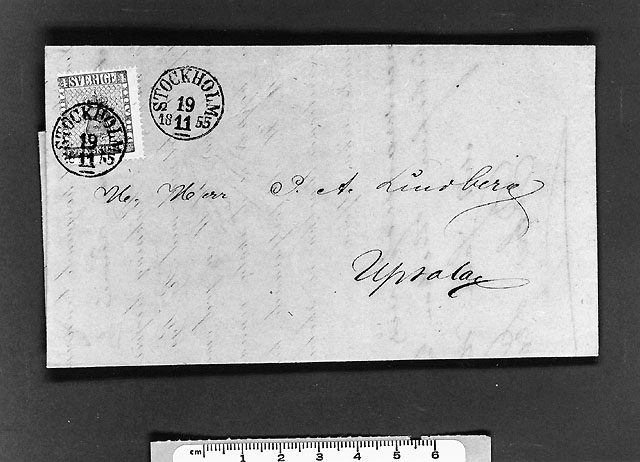 4 SVERIGE 4
STOCKHOLM
19
18 55
11
STOCKHOLM
19
11
Herr P. A. Lindberg
Upsala
cm 1 2 3 4 5 6